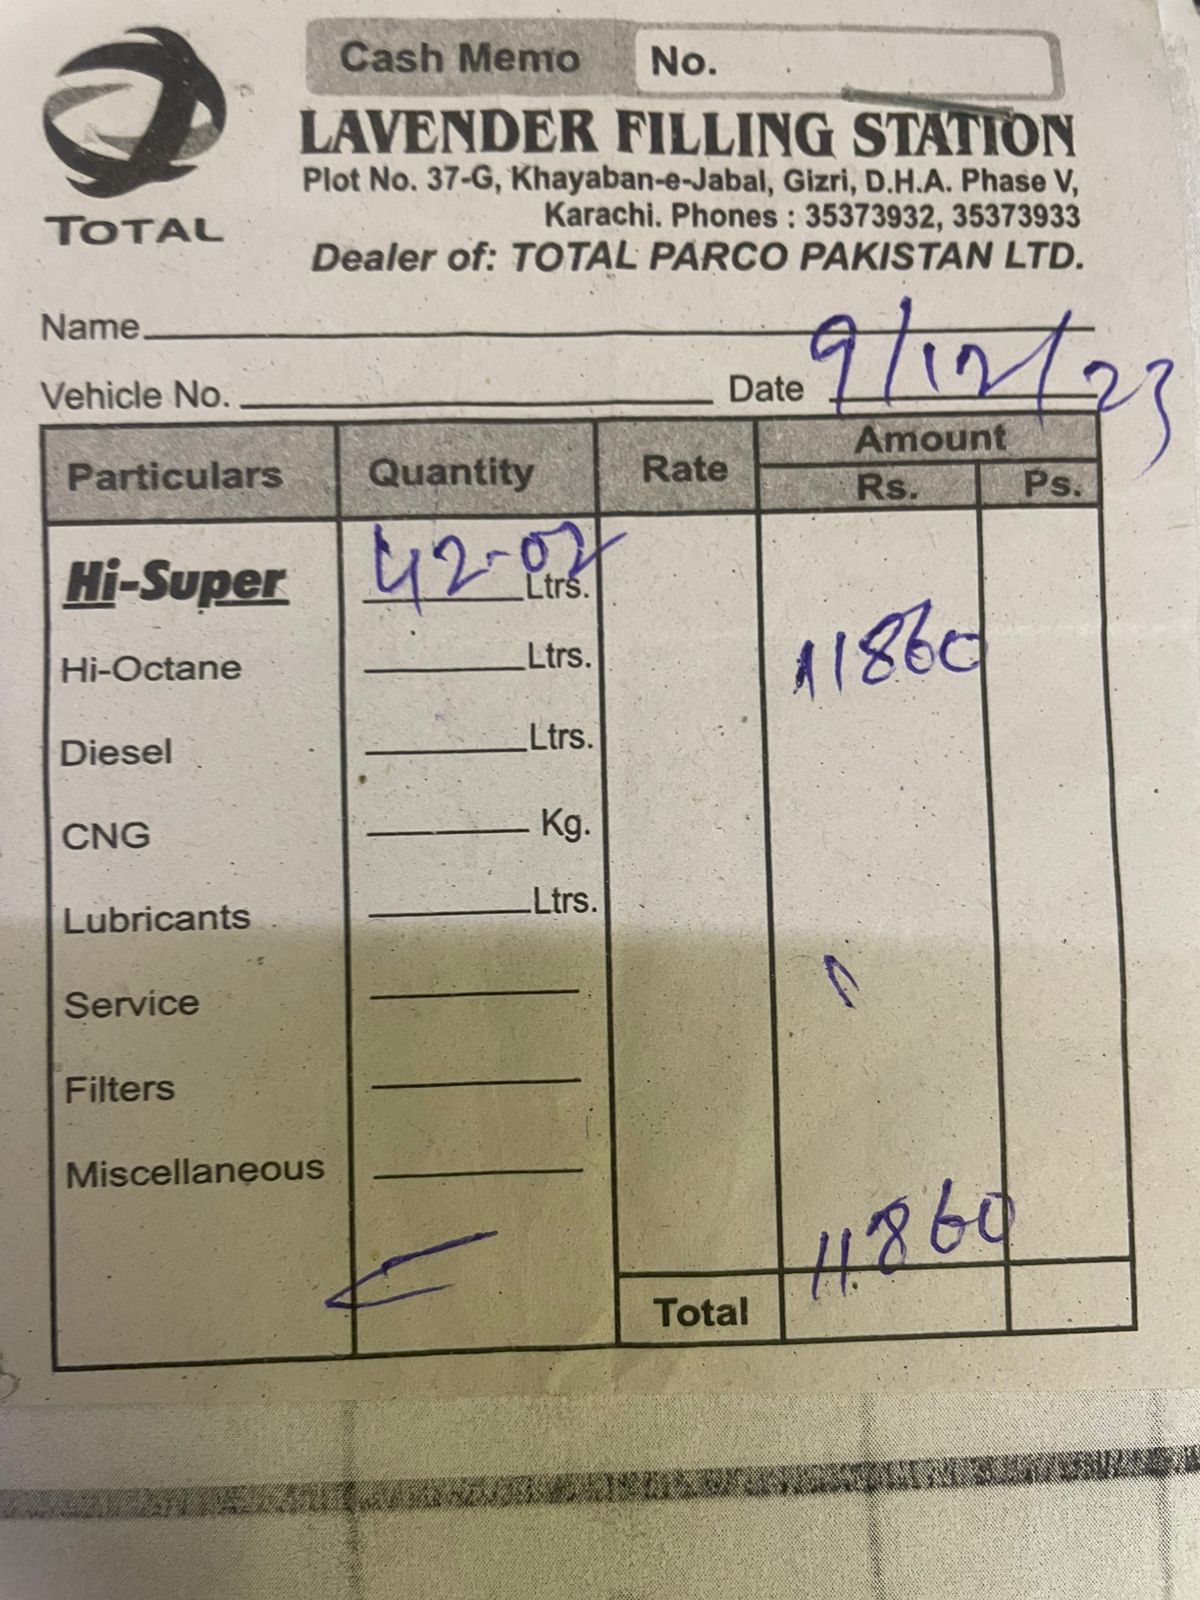 Cash Memo No.
LAVENDER FILLING STATION
Plot No. 37-G, Khayaban-e-Jabal, Gizri, D.H.A. Phase V,
Karachi. Phones : 35373932, 35373933
TOTAL
Dealer of: TOTAL PARCO PAKISTAN LTD.
Name
Vehicle No. Date 9/12/23
Particulars Quantity Rate Amount
Rs. Ps.
Hi-Super 42-02 Ltrs.
Hi-Octane Ltrs. 11860
Diesel Ltrs.
CNG Kg.
Lubricants Ltrs.
Service
Filters
Miscellaneous
Total 11860